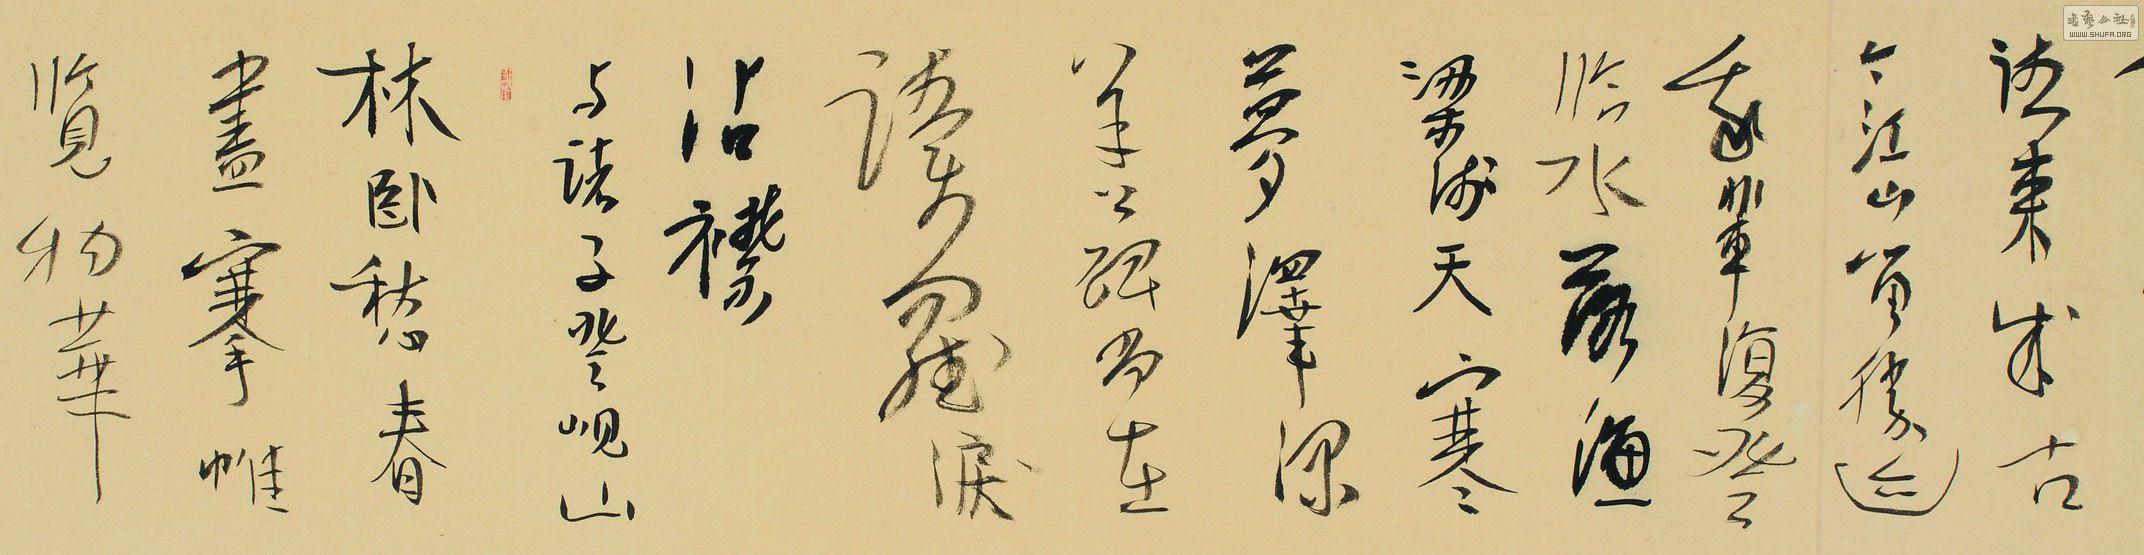 往來成古
今江山留勝迹
我輩復登
临水落漁
梁淺天寒
夢澤深
羊公碑尚在
讀罷淚
沾襟
与諸子登峴山
林臥愁春
盡搴帷
覽物華
WWW.SHUFA.ORG